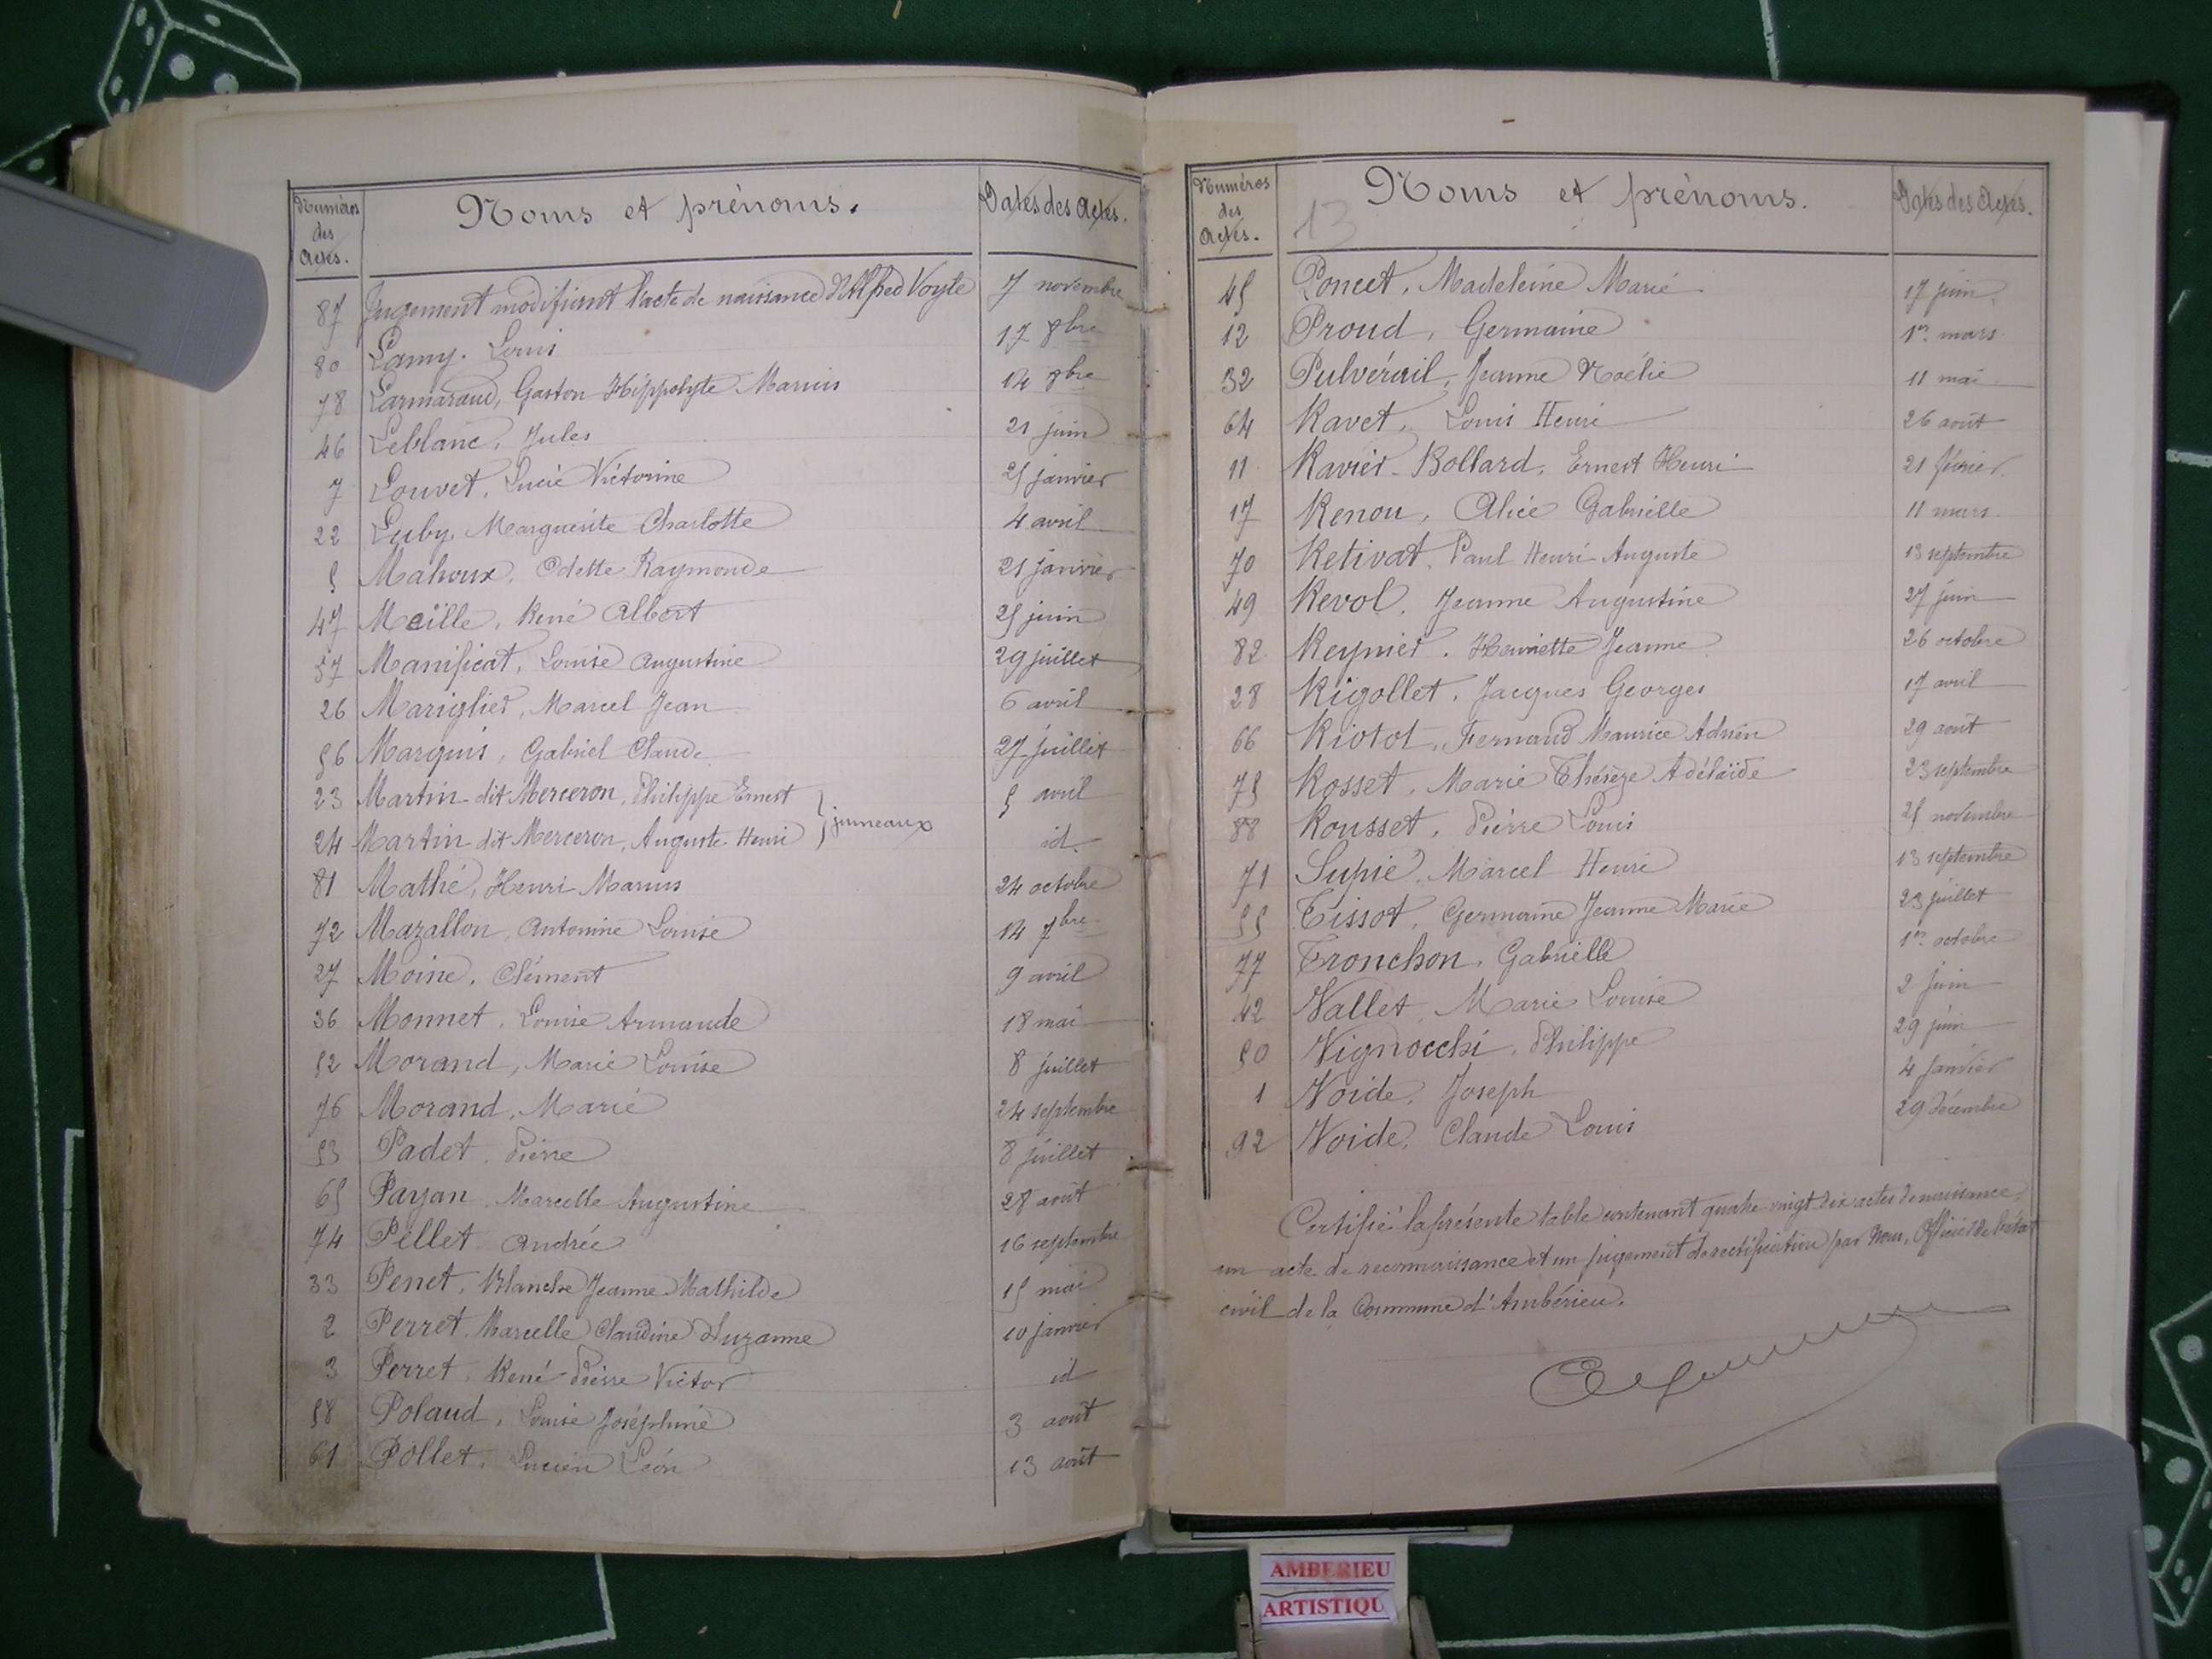 Numéros des Actes. Noms et prénoms. Dates des Actes.
87 Jugement modifiant l'acte de naissance d'Alfred Voyle 7 novembre
80 Lamy. Louis 17 8bre
78 Larmaraud, Gaston Hippolyte Marius 14 8bre
46 Leblanc, Jules 21 juin
7 Louvet, Lucie Victorine 25 janvier
22 Luby, Marguerite Charlotte 4 avril
5 Mahoux, Odette Raymonde 21 janvier
47 Maille, René Albert 25 juin
57 Manificat, Louise Augustine 29 juillet
26 Mariglier, Marcel Jean 6 avril
56 Marquis, Gabriel Claude 27 juillet
23 Martin dit Merceron, Philippe Ernest 5 avril
jumeaux
24 Martin dit Merceron, Auguste Henri id.
81 Mathé, Henri Marius 24 octobre
72 Mazallon, Antonine Louise 14 7bre
27 Moine, Clément 9 avril
36 Monnet, Louise Armande 18 mai
52 Morand, Marie Louise 8 juillet
76 Morand, Marie 24 septembre
53 Padet, Pierre 8 juillet
65 Payan, Marcelle Augustine 28 août
74 Pellet Andrée 16 septembre
33 Penet, Blanche Jeanne Mathilde 15 mai
2 Perret, Marcelle Claudine Suzanne 10 janvier
3 Perret, René Pierre Victor id
58 Polaud, Louise Joséphine 3 août
61 Pollet, Lucien Léon 13 août
Numéros des Actes. Noms et prénoms. Dates des Actes.
13
45 Poncet, Madeleine Marie 17 juin
12 Proud, Germaine 1er mars
32 Pulvérail, Jeanne Noélie 11 mai
64 Ravet, Louis Henri 26 août
11 Ravier-Bollard, Ernest Henri 21 février
17 Renou, Alice Gabrielle 11 mars
70 Retivat, Paul Henri Auguste 13 septembre
49 Revol, Jeanne Augustine 27 juin
82 Reynier, Henriette Jeanne 26 octobre
28 Rigollet, Jacques Georges 17 avril
66 Riotot, Fernand Maurice Adrien 29 août
75 Rosset, Marie Thérèze Adélaïde 23 septembre
88 Rousset, Pierre Louis 25 novembre
71 Supié, Marcel Henri 13 septembre
55 Tissot, Germaine Jeanne Marie 23 juillet
77 Tronchon, Gabrielle 1er octobre
42 Vallet, Marie Louise 2 juin
50 Vignocchi, Philippe 29 juin
1 Voide, Joseph 4 janvier
92 Voide, Claude Louis 29 décembre
Certifié la présente table contenant quatre vingt dix actes de naissance,
un acte de reconnaissance et un jugement de rectification par Nous, Officier de l'état
civil de la Commune d'Ambérieu.
AMBERIEU
ARTISTIQU